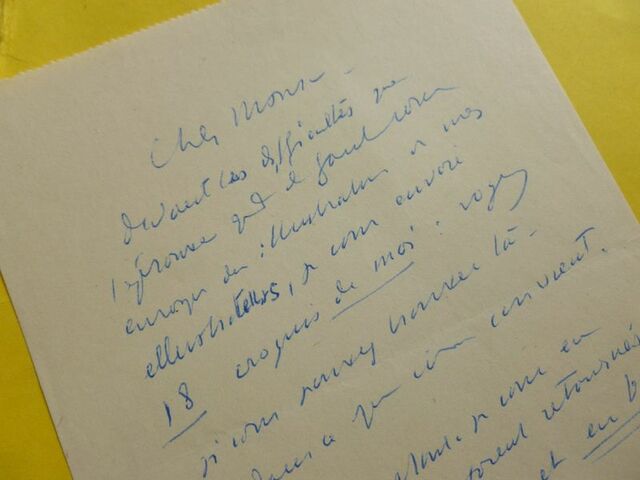 Cher Mons
devant les difficultés que
j'éprouve
envoyer des illustrations à mes
illustrateurs, je vous envoie
18 croquis de moi : voyez
si vous pouvez trouver là-
dans ce qui vous convient.
je vous en
retournés
et en b